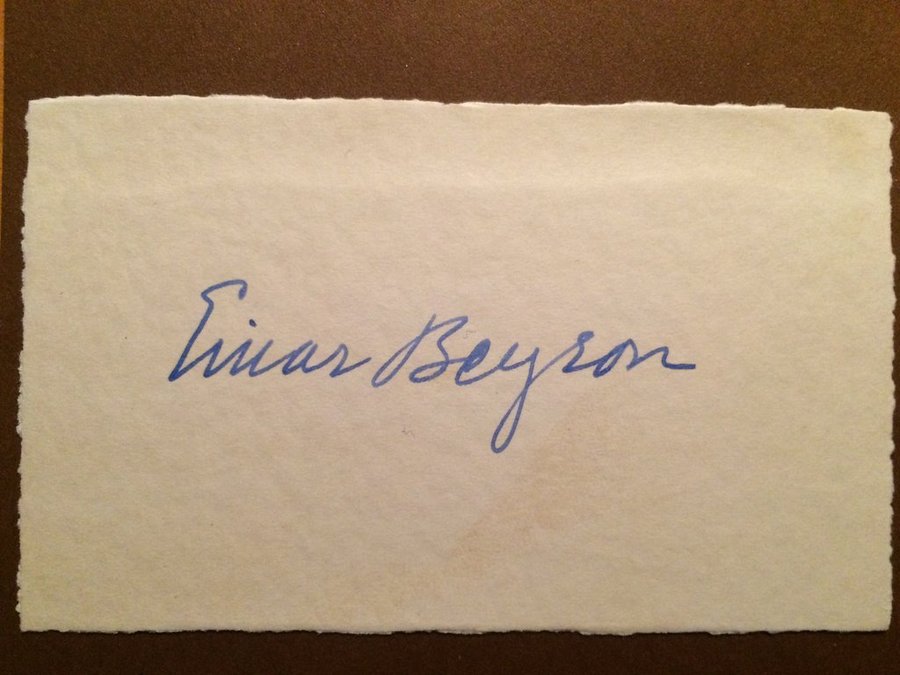 Einar Beyron